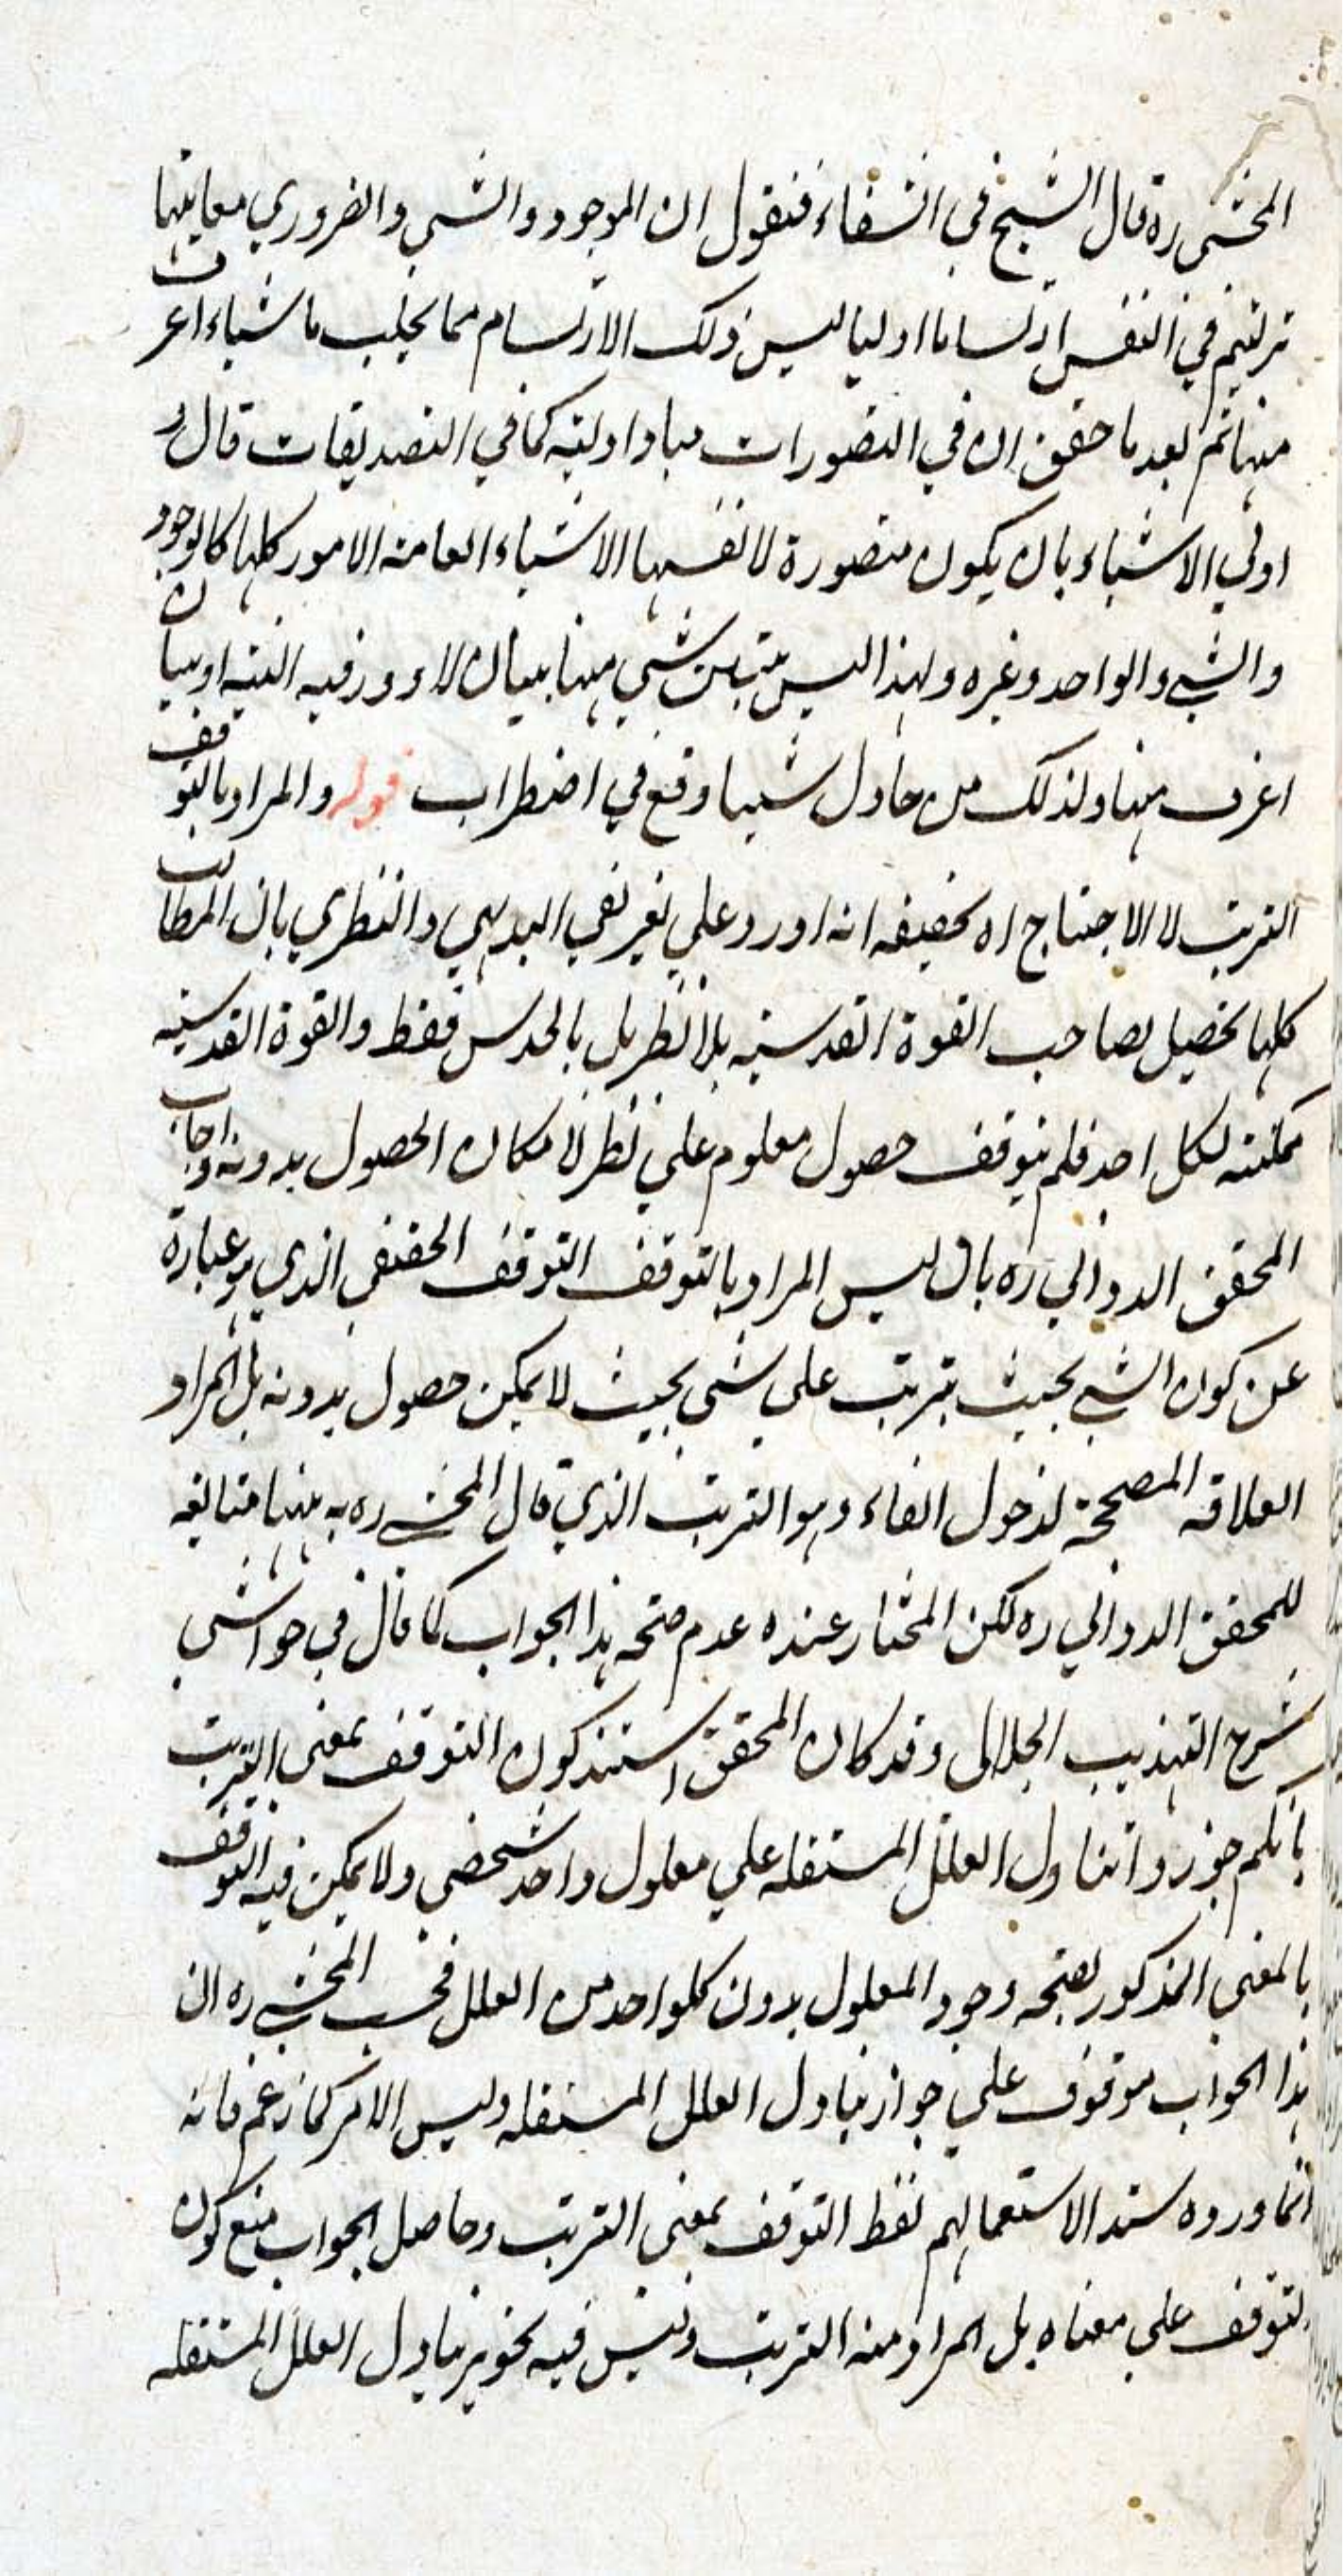 المحشي ره قال الشيخ في الشفاء فنقول ان الموجود والشي والضروري معانيها
ترتسم في النفس ارتساما اوليا ليس ذلك الارتسام مما يجلب باشياء اعرف
منها ثم بعد ما حقق ان في التصورات مبادا اولية كما في التصديقات قال و
اولي الاشياء بان يكون متصورة لانفسها الاشياء العامة الامور كلها كالوجود
والشي والواحد وغيره ولهذا ليس يتبين شي منها ببيان لا دور فيه البتة او ببيان
اعرف منها ولذلك من حاول شيئا وقع في اضطراب قوله والمراد بالتوقف
الترتب لا الاحتياج اه تحقيقه انه اورد علي تعريفي البديهي والنظري بان المطالب
كلها تحصيل لصاحب القوة القدسية بلا نظر بل بالحدس فقط والقوة القدسية
ممكنة لكل احد فلم يتوقف حصول معلوم علي نظر لامكان الحصول بدونه واجاب
المحقق الدواني ره بان ليس المراد بالتوقف التوقف الحقيقي الذي هو عبارة
عن كون الشي بحيث يترتب علي شي بحيث لا يمكن حصول بدونه بل المراد
العلاقة المصححة لدخول الفاء وهو الترتب الذي قال المحشي ره به ههنا متابعة
للمحقق الدواني ره لكن المختار عنده عدم صحة هذا الجواب كما قال في حواشي
شرح التهذيب الجلالي وقد كان المحقق استند كون التوقف بمعني الترتب
بانكم جوزوا تناول العلل المستقلة علي معلول واحد شخصي ولا يمكن فيه التوقف
بالمعني المذكور لصحة وجود المعلول بدون كلواحد من العلل فحسب المحشي ره ان
هذا الجواب موقوف علي جواز تبادل العلل المستقلة وليس الامر كما زعم فانه
انما اورده سندا لاستعمالهم لفظ التوقف بمعني الترتب وحاصل الجواب منع كون
التوقف علي معناه بل المراد منه الترتب وليس فيه تجويز تبادل العلل المستقلة